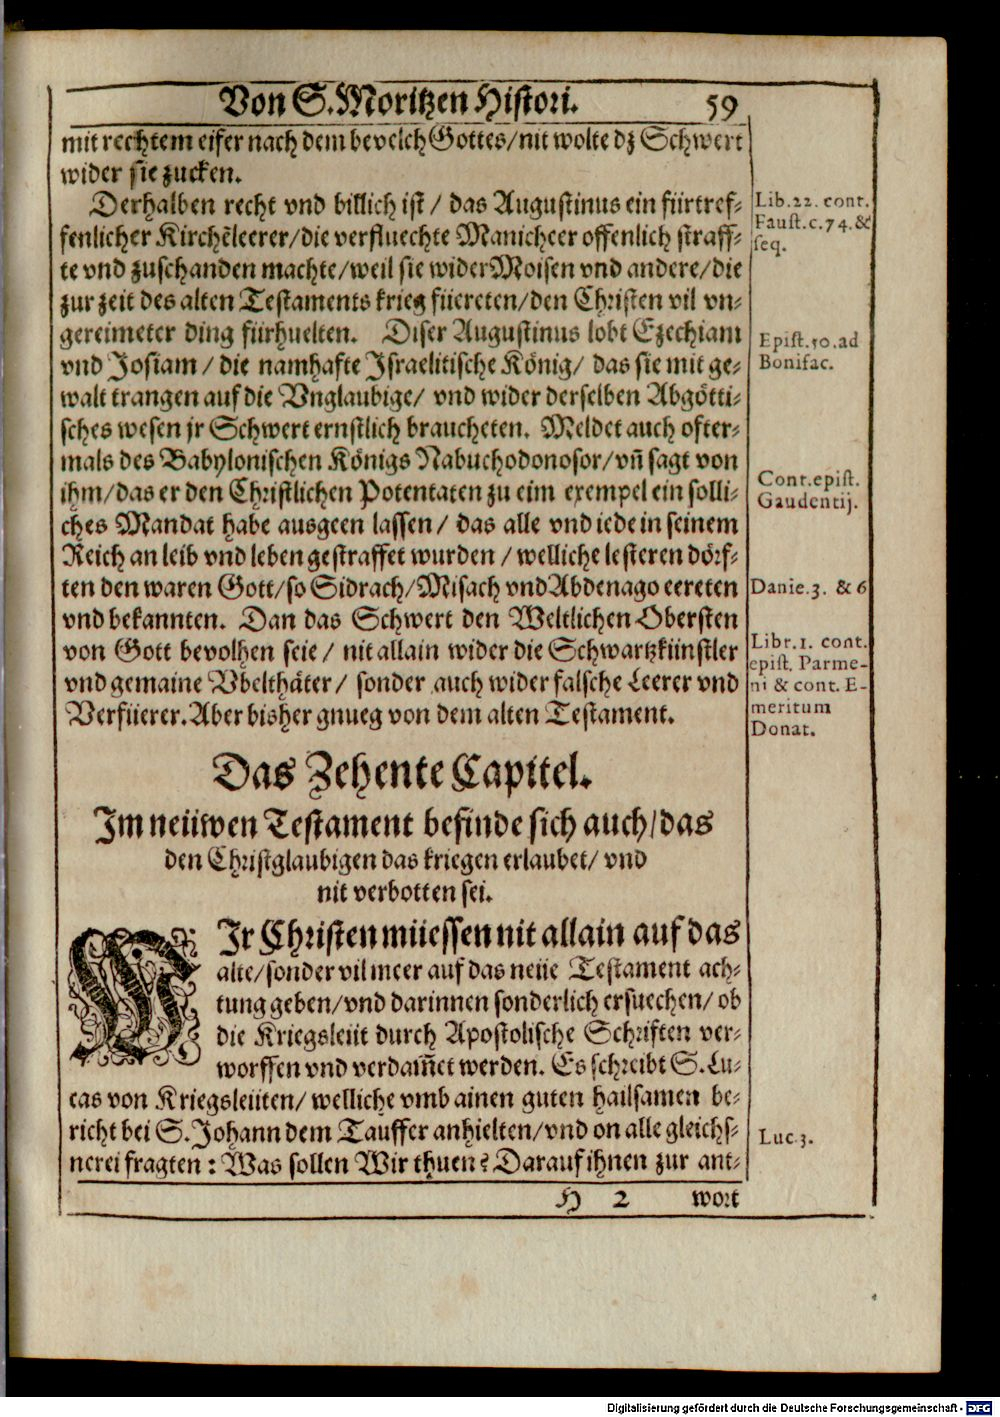 Von S. Moritzen Histori. 59
mit rechtem eifer nach dem bevelch Gottes/nit wolte dz Schwert
wider sie zucken.
Derhalben recht vnd billich ist / das Augustinus ein fürtref-
fenlicher Kirchẽleerer/die verfluechte Manicheer offenlich straff-
te vnd zuschanden machte/weil sie wider Moisen vnd andere/die
zur zeit des alten Testaments krieg füereten/den Christen vil vn-
gereimeter ding fürhuelten. Diser Augustinus lobt Ezechiam
vnd Josiam / die namhafte Israelitische König/ das sie mit ge-
walt trangen auf die Vnglaubige/ vnd wider derselben Abgötti-
sches wesen jr Schwert ernstlich braucheten. Meldet auch ofter-
mals des Babylonischen Königs Nabuchodonosor/vñ sagt von
ihm/das er den Christlichen Potentaten zu eim exempel ein solli-
ches Mandat habe ausgeen lassen/ das alle vnd iede in seinem
Reich an leib vnd leben gestraffet wurden / welliche lesteren dörf-
ten den waren Gott/so Sidrach/Misach vnd Abdenago eereten
vnd bekannten. Dan das Schwert den Weltlichen Obersten
von Gott bevolhen seie/ nit allain wider die Schwartzkünstler
vnd gemaine Vbelthäter/ sonder auch wider falsche Leerer vnd
Verfüerer. Aber bisher gnueg von dem alten Testament.
Lib.22. cont.
Faust.c.74.&
seq.
Epist.50.ad
Bonifac.
Cont.epist.
Gaudentij.
Danie.3. & 6
Libr.1. cont.
epist. Parme-
ni & cont. E-
meritum
Donat.
Das Zehente Capitel.
Im neüwen Testament befinde sich auch/das
den Christglaubigen das kriegen erlaubet/ vnd
nit verbotten sei.
WIr Christen müessen nit allain auf das
alte/sonder vil meer auf das neüe Testament ach-
tung geben/vnd darinnen sonderlich ersuechen/ ob
die Kriegsleüt durch Apostolische Schriften ver-
worffen vnd verdam̃et werden. Es schreibt S. Lu-
cas von Kriegsleüten/ welliche vmb ainen guten hailsamen be-
richt bei S. Johann dem Tauffer anhielten/vnd on alle gleichs-
nerei fragten : Was sollen Wir thuen? Darauf ihnen zur ant-
Luc.3.
H 2 wort
Digitalisierung gefördert durch die Deutsche Forschungsgemeinschaft - DFG